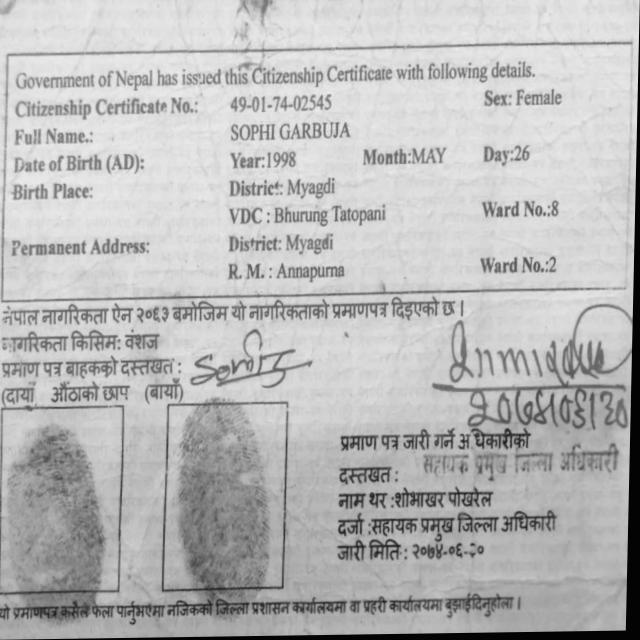 Government of Nepal has issued this Citizenship Certificate with following details.
Citizenship Certificate No.: 49-01-74-02545 Sex: Female
Full Name.: SOPHI GARBUJA
Date of Birth (AD): Year:1998 Month:MAY Day:26
Birth Place: District: Myagdi
VDC : Bhurung Tatopani Ward No.:8
Permanent Address: District: Myagdi
R. M. : Annapurna Ward No.:2
नेपाल नागरिकता ऐन २०६३ बमोजिम यो नागरिकताको प्रमाणपत्र दिइएको छ ।
नागरिकता किसिम: वंशज
प्रमाण पत्र बाहकको दस्तखत :
(दायाँ औंठाको छाप (बायाँ)
२०७४।०६।२०
प्रमाण पत्र जारी गर्ने अधिकारीको
सहायक प्रमुख जिल्ला अधिकारी
दस्तखत :
नाम थर : शोभाखर पोखरेल
दर्जा : सहायक प्रमुख जिल्ला अधिकारी
जारी मिति : २०७४-०६-२०
यो प्रमाणपत्र कसैले फेला पार्नुभएमा नजिकको जिल्ला प्रशासन कार्यालयमा वा प्रहरी कार्यालयमा बुझाईदिनुहोला ।